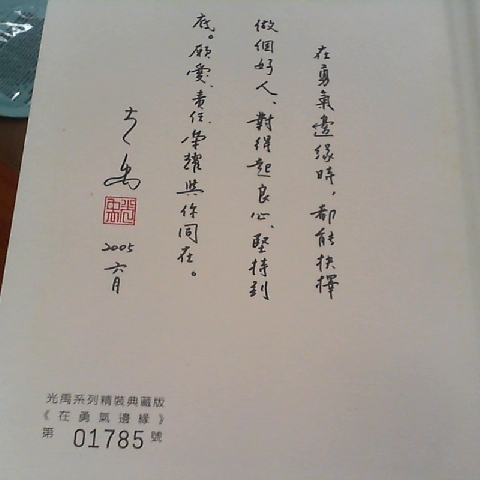 在勇氣邊緣時，都能抉擇
做個好人、對得起良心、堅持到
底。願愛、責任、榮耀與你同在。
光禹
2005
六月
光禹系列精裝典藏版
《在勇氣邊緣》
第 01785 號